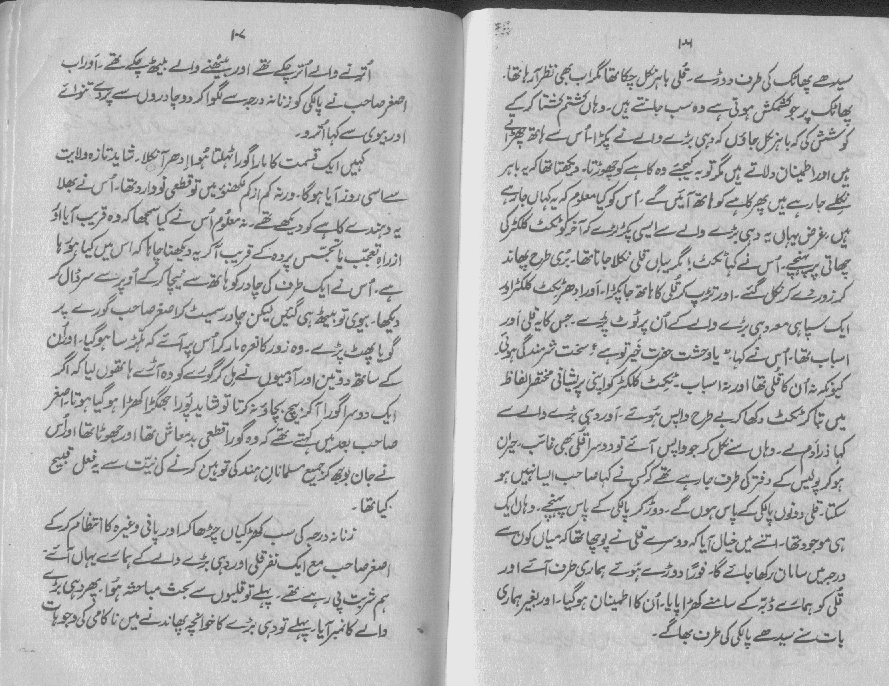 ۱۰۶
سیدھے پھاٹک کی طرف دوڑے۔ قلی باہر نکل چکا تھا مگر اب بھی نظر آ رہا تھا۔
پھاٹک پر جو کشمکش ہوتی ہے وہ سب جانتے ہیں۔ وہاں کشتم کشتا کر کے
کوشش کی کہ باہر نکل جاؤں کہ دہی بڑے والے نے پکڑا۔ اُس سے ہاتھ چھڑاتے
ہیں اور اطمینان دلاتے ہیں مگر توبہ کیجئے وہ کاہے کو چھوڑتا۔ دیکھتا تھا کہ یہ باہر
نکلے جا رہے ہیں پھر کاہے کو ہاتھ آئیں گے۔ اُس کو کیا معلوم کہ یہ کہاں جا رہے
ہیں۔ غرض یہاں یہ دہی بڑے والے سے ایسی پکڑ دھکڑ کہ آخر کو ٹکٹ کلکٹر کی
چھاتی پر پہنچے۔ اُس نے کہا "ٹکٹ"! مگر یہاں قلی نکلا جاتا تھا۔ بُری طرح پھاند
کر زور دے کر نکل گئے۔ اور تڑپ کر قُلی کا ہاتھ جا پکڑا۔ اور ادھر ٹکٹ کلکٹر اور
ایک سپاہی معہ دہی بڑے والے کے اُن پر ٹوٹ پڑے۔ جس کا یہ قلی اور
اسباب تھا۔ اُس نے کہا۔ "یا وحشت حضرت خیر تو ہے" سخت شرمندگی ہوئی
کیونکہ نہ اُن کا قلی تھا اور نہ اسباب۔ ٹکٹ کلکٹر کو اپنی پریشانی مختصر الفاظ
میں بتا کر ٹکٹ دکھا کر بے طرح واپس ہوتے۔ اور دہی بڑے والے سے
کہا ذرا دم لے۔ وہاں سے نکل کر جو واپس آئے تو دوسرا قلی بھی غائب، حیران
ہو کر پولیس کے دفتر کی طرف جا رہے تھے کہ کسی نے کہا صاحب ایسا نہیں ہو
سکتا۔ قلی دونوں پالکی کے پاس ہوں گے۔ دوڑ کر پالکی کے پاس پہنچے۔ وہاں ایک
ہی موجود تھا۔ اتنے میں خیال آیا کہ دوسرے قلی نے پوچھا تھا کہ میاں کون سے
درجہ میں سامان رکھا جائے گا۔ فوراً دوڑے ہوتے ہماری طرف آئے اور
قلی کو ہمارے ڈبہ کے سامنے کھڑا پایا۔ اُن کا اطمینان ہو گیا۔ اور بغیر ہماری
بات سنے سیدھے پالکی کی طرف بھاگے۔
۱۰۷
اُترنے والے اُتر چکے تھے اور بیٹھنے والے بیٹھ چکے تھے۔ اور اب
اصغر صاحب نے پالکی کو زنانہ درجہ سے لگوا کر دو چادروں سے پردے تنوائے
اور بیوی سے کہا اُترو۔
کہیں ایک قسمت کا مارا گورا ٹہلتا ہُوا اِدھر آ نکلا۔ شاید تازہ ولایت
سے اسی روز آیا ہوگا۔ ورنہ کم از کم لکھنؤ میں تو قطعی نووارد تھا۔ اُس نے بھلا
یہ دہندے کاہے کو دیکھے تھے۔ نہ معلوم اُس نے کیا سمجھا کہ وہ قریب آیا اور
از راہِ تعجب یا تجسّس پردہ کے قریب آ کر یہ دیکھنا چاہا کہ اس میں کیا ہو رہا
ہے۔ اُس نے ایک طرف کی چادر کو ہاتھ سے نیچا کر کے اُوپر سے سر ڈال کر
دیکھا۔ بیوی تو بیٹھ ہی گئیں لیکن چادر سمیٹ کر اصغر صاحب گورے پر
گویا پھٹ پڑے۔ وہ زور کا نعرہ مار کر اُس پر آئے کہ ہُلّڑ سا ہو گیا۔ اور اُن
کے ساتھ دو تین اور آدمیوں نے مل کر گورے کو وہ آڑے ہاتھوں لیا کہ اگر
ایک دوسرا گورا آ کر بیچ بچاؤ نہ کرتا تو شاید پُورا جھگڑا کھڑا ہو گیا ہوتا۔ اصغر
صاحب بعد میں کہتے تھے کہ وہ گورا قطعی بدمعاش تھا اور جھوٹا تھا اور اُس
نے جان بوجھ کر جمیع مسلمانانِ ہند کی توہین کرنے کی نیّت سے یہ فعلِ قبیح
کیا تھا۔
زنانہ درجہ کی سب کھڑکیاں چڑھا کر اور پانی وغیرہ کا انتظام کر کے
اصغر صاحب مع ایک نفر قلی اور دہی بڑے والے کے ہمارے یہاں آئے۔
ہم شربت پی رہے تھے۔ پہلے تو قلیوں سے بحث مباحثہ ہوا۔ پھر دہی بڑے
والے کا نمبر آیا۔ پہلے تو دہی بڑے کا خوانچہ پھاندنے میں ناکامی کی وجوہات